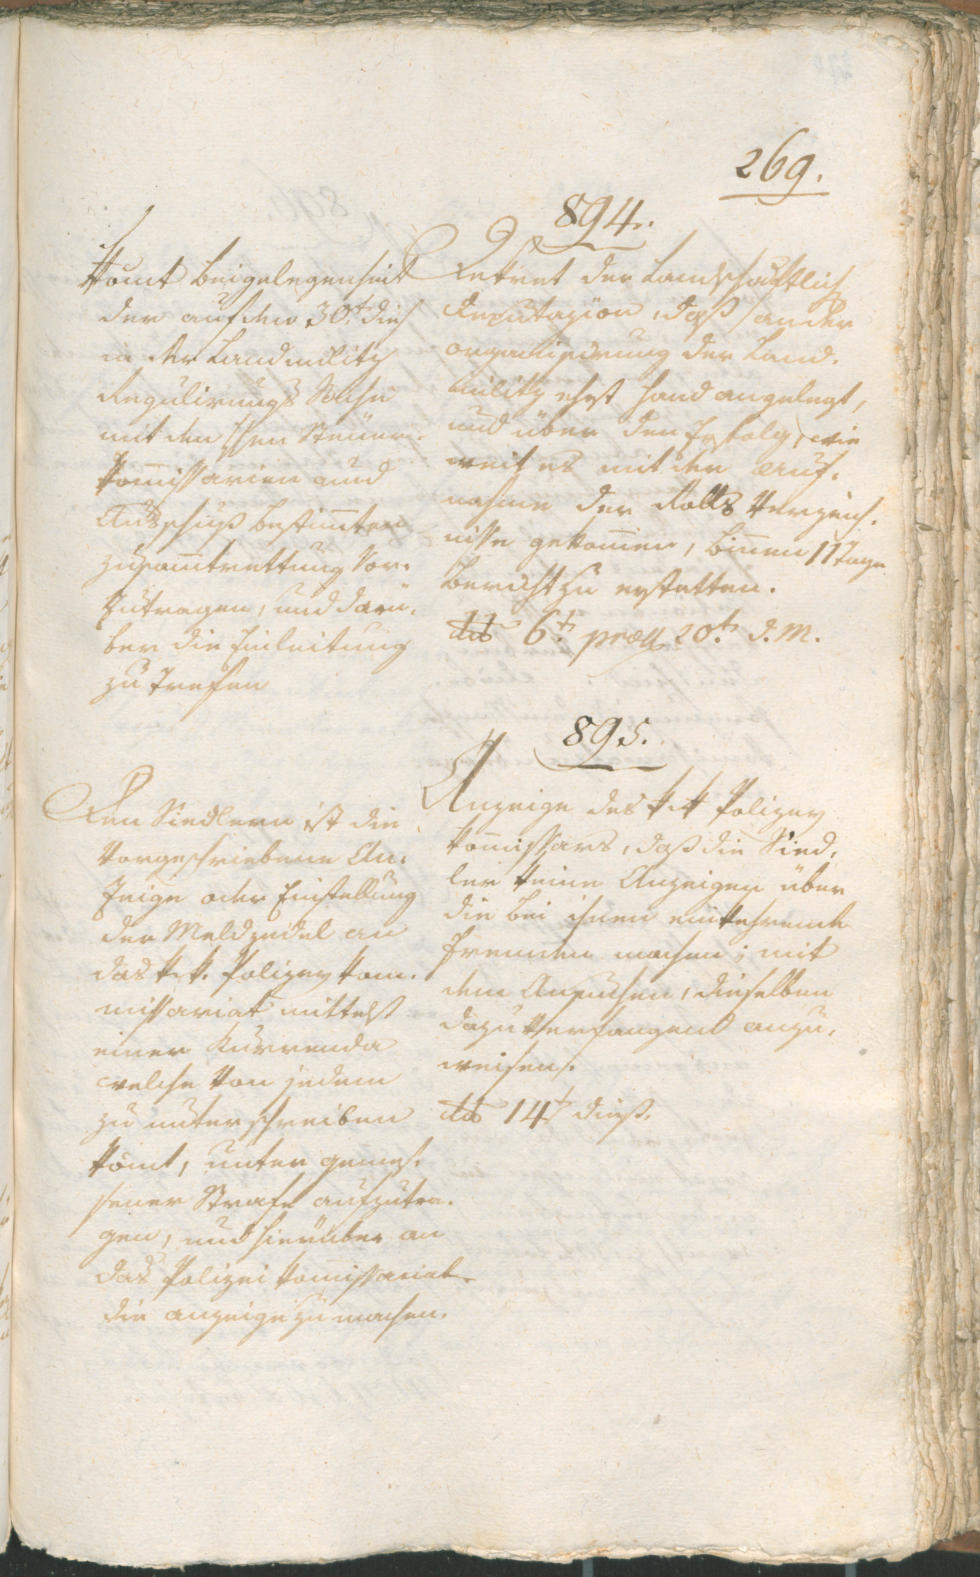 269.
894.
Kömt beigelegenheit
der auf den 30t. dieß
in der Landmilitz
Regulirungs Sache
mit den Steüer-
kom̄issarien und
Ausschuß bestim̄ten
zusam̄trettung vor-
zutragen, und darü-
ber die Einleitung
zu trefen
Dekret der Landschäftlich
Deputazion, daß an der
organisierung der Land-
militz ehest Hand angelegt,
und über den Erfolg, wie
weit es mit der Auf-
nahme der Rolls Verzeich-
nisse gekom̄en, binnen 11 Tage
Bericht zu erstatten.
dto 6t. præs 20t. d. M.
895.
Den Siedlern ist die
vorgeschriebene An-
zeige oder Einstellung
der Meldzedel an
das k. k. Polizey kom-
missariat mittelst
einer Kurrenda
welche von jedem
zu unterschreiben
kömt, unter gemes-
sener Strafe aufzutra-
gen, und hierüber an
das Polizei kom̄issariat
die anzeige zu machen.
Anzeige des k. k. Polizey
kom̄issärs, daß die Sied-
ler keine Anzeigen über
die bei ihnen einkehrende
fremden machen; mit
dem Ansuchen, dieselben
dazu verfangend anzu-
weisen.
dto 14t. dieß.